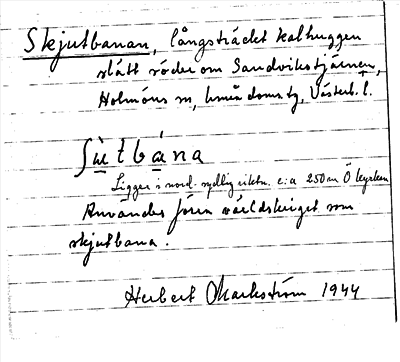 Skjutbanan, långsträckt kalhuggen
slätt söder om Sandvikstjärnen,
Holmöns sn, Umeå doms. tg, Västerb. l.
ʃùtbána
Ligger i nord-sydlig riktn. c:a 250 m Ö kyrkan
Användes förra världskriget som
skjutbana.
Herbert Markström 1944